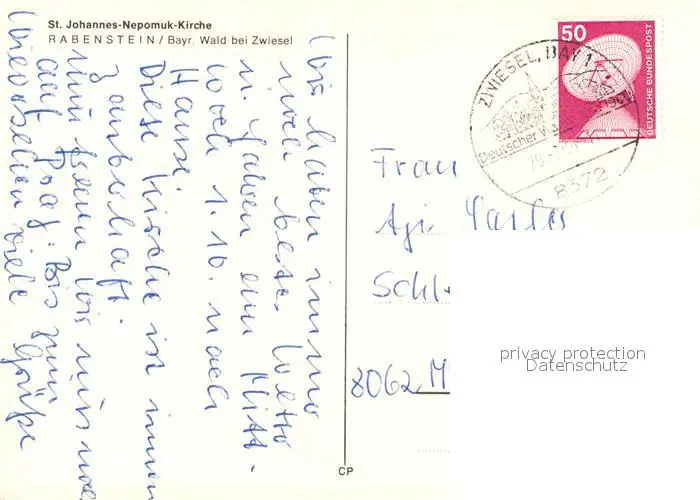 St. Johannes-Nepomuk-Kirche
RABENSTEIN / Bayr. Wald bei Zwiesel
Wir haben immer
noch bestes Wetter
u. fahren am Mitt-
woch 1.10. nach
Hause.
Diese Kirche ist innen
zauberhaft.
nun freuen wir uns
auf Bis zum
Wiedersehen viele Grüße
50
DEUTSCHE BUNDESPOST
ZWIESEL, BAY 1
Deutscher
8372
Frau
Schl
8062 M
privacy protection
Datenschutz
CP